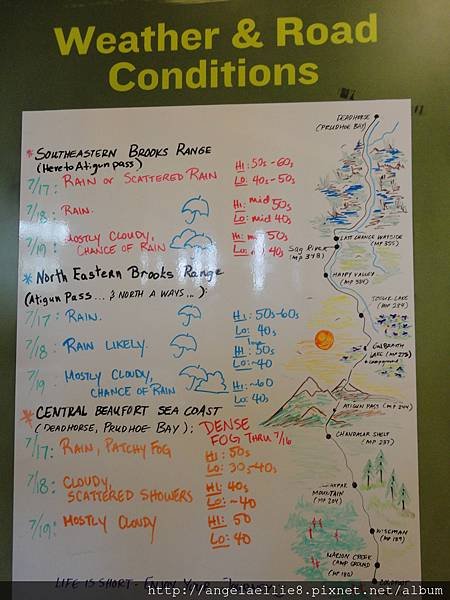 Weather & Road
Conditions
* SOUTHEASTERN BROOKS RANGE
(Here to Atigun pass)
7/17: RAIN or SCATTERED RAIN
HI: 50s - 60s
LO: 40s - 50s
7/18: RAIN.
HI: mid 50s
LO: mid 40s
7/19: MOSTLY CLOUDY,
CHANCE OF RAIN
HI: 50s
LO: 40s
* North Eastern Brooks Range
(Atigun Pass ... & NORTH A WAYS...):
7/17: RAIN.
HI: 50s-60s
LO: 40s
7/18: RAIN LIKELY.
HI: low 50s
LO: ~40
7/19: MOSTLY CLOUDY,
CHANCE OF RAIN
HI: ~60
LO: 40s
* CENTRAL BEAUFORT SEA COAST
(DEADHORSE, PRUDHOE BAY):
DENSE
FOG THRU 7/16
7/17: RAIN, PATCHY FOG
HI: 50s
LO: 30s-40s
7/18: CLOUDY,
SCATTERED SHOWERS
HI: 40s
LO: ~40
7/19: MOSTLY CLOUDY
HI: 50
LO: 40
LIFE IS SHORT - ENJOY YOUR
DEADHORSE
(PRUDHOE BAY)
LAST CHANCE WAYSIDE
(MP 355)
Sag River
(MP 348)
HAPPY VALLEY
(MP 334)
TOOLIK LAKE
(MP 284)
GALBRAITH
LAKE (MP 275)
campground
ATIGUN PASS (MP 244)
CHANDALAR SHELF
(MP 237)
MOUNTAIN
(MP 204)
WISEMAN
(MP 189)
MARION CREEK
CAMP GROUND
(MP 180)
COLDFOOT
http://angelaellie8.pixnet.net/album